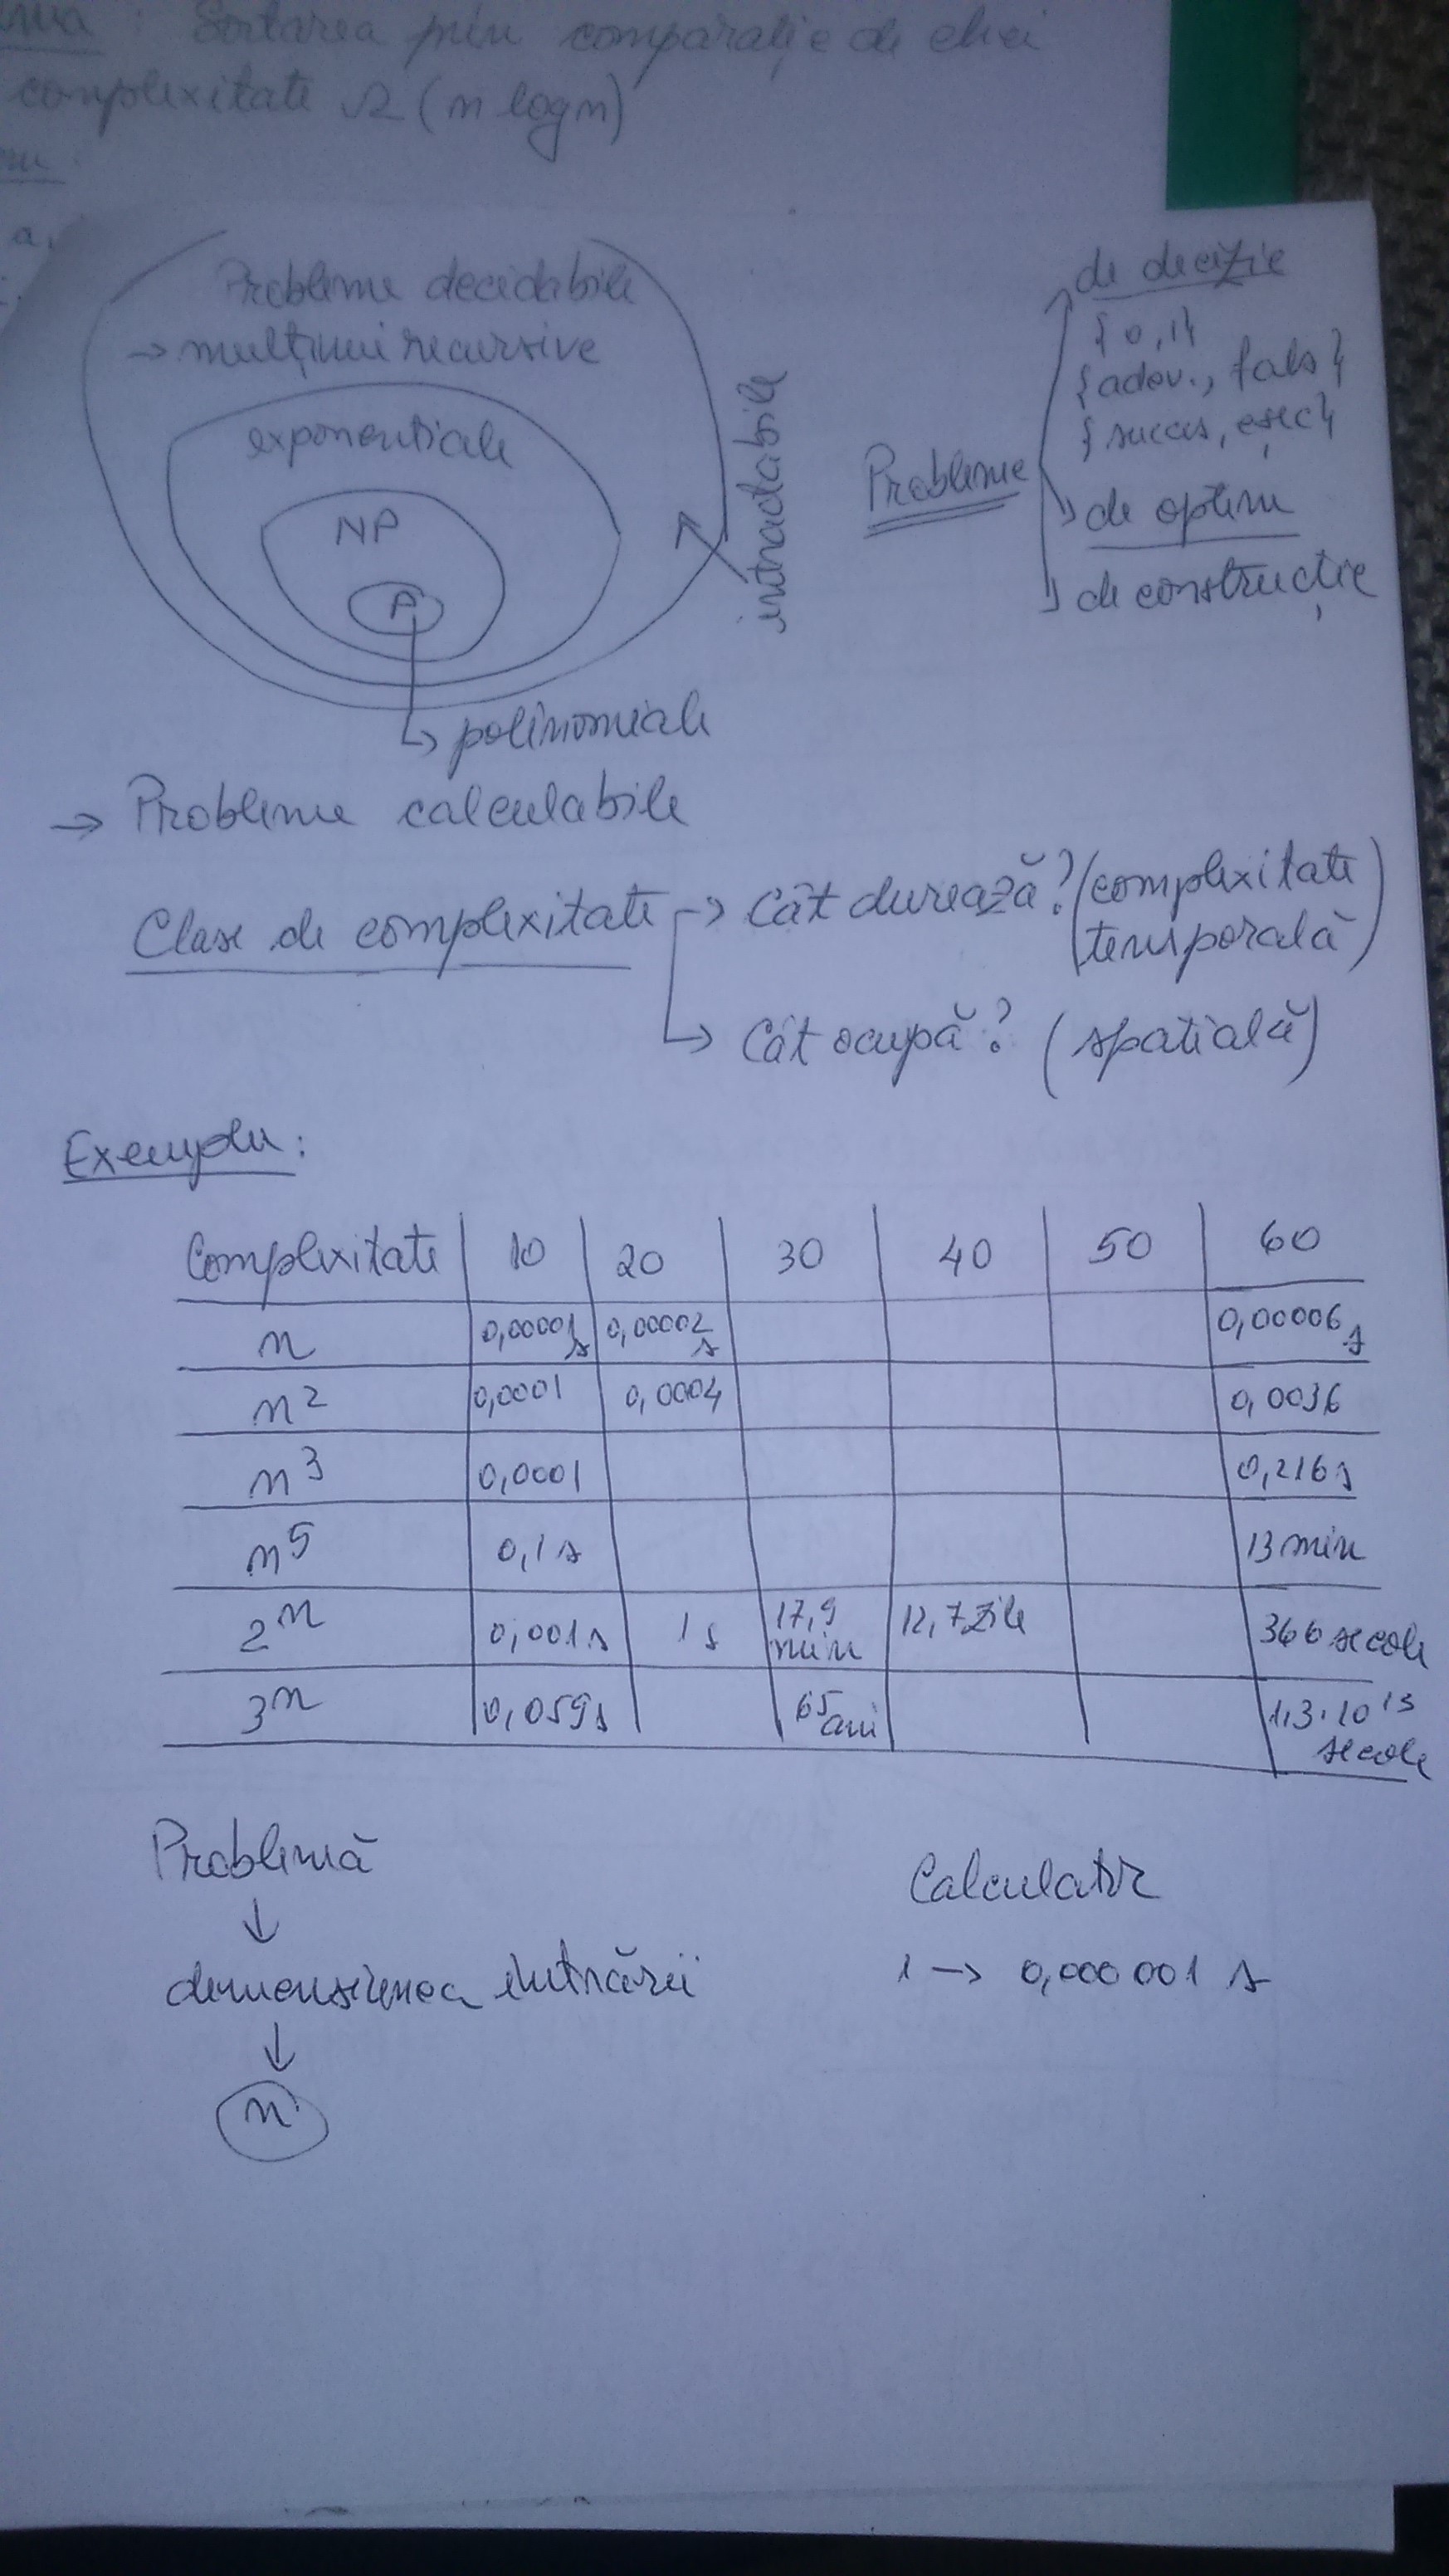 Sortarea prin comparație de chei
complexitate Ω (n log n)
a,
Probleme decidabile
→ mulțimi recursive
exponentiale
NP
P
↳ polinomiale
intractabile
Probleme
de decizie
{0,1}
{adev., fals}
{succes, eșec}
↘ de optim
↘ de construcție
→ Probleme calculabile
Clase de complexitate → Cât durează? (complexitate
temporală)
↳ Cât ocupă? (spatială)
Exemplu:
Complexitate | 10 | 20 | 30 | 40 | 50 | 60
n | 0,00001 s | 0,00002 s | | | | 0,00006 s
n² | 0,0001 | 0,0004 | | | | 0,0036
n³ | 0,0001 | | | | | 0,216 s
n⁵ | 0,1 s | | | | | 13 min
2ⁿ | 0,001 s | 1 s | 17,9 min | 12,7 zile | | 366 secole
3ⁿ | 0,059 s | | 65 ani | | | 1,3·10¹³ secole
Problemă
↓
dimensiunea intrării
↓
n
Calculator
1 → 0,000 001 s